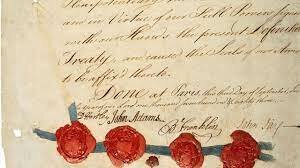 and in Virtue of our Full Powers
with our Hands the present Definitive
Treaty, and caused the Seals of our Arms
to be affix'd thereto.
Done at Paris, this third day of September,
year of our Lord one thousand seven hundred & Eighty three.
D Hartley John Adams B Franklin John Jay